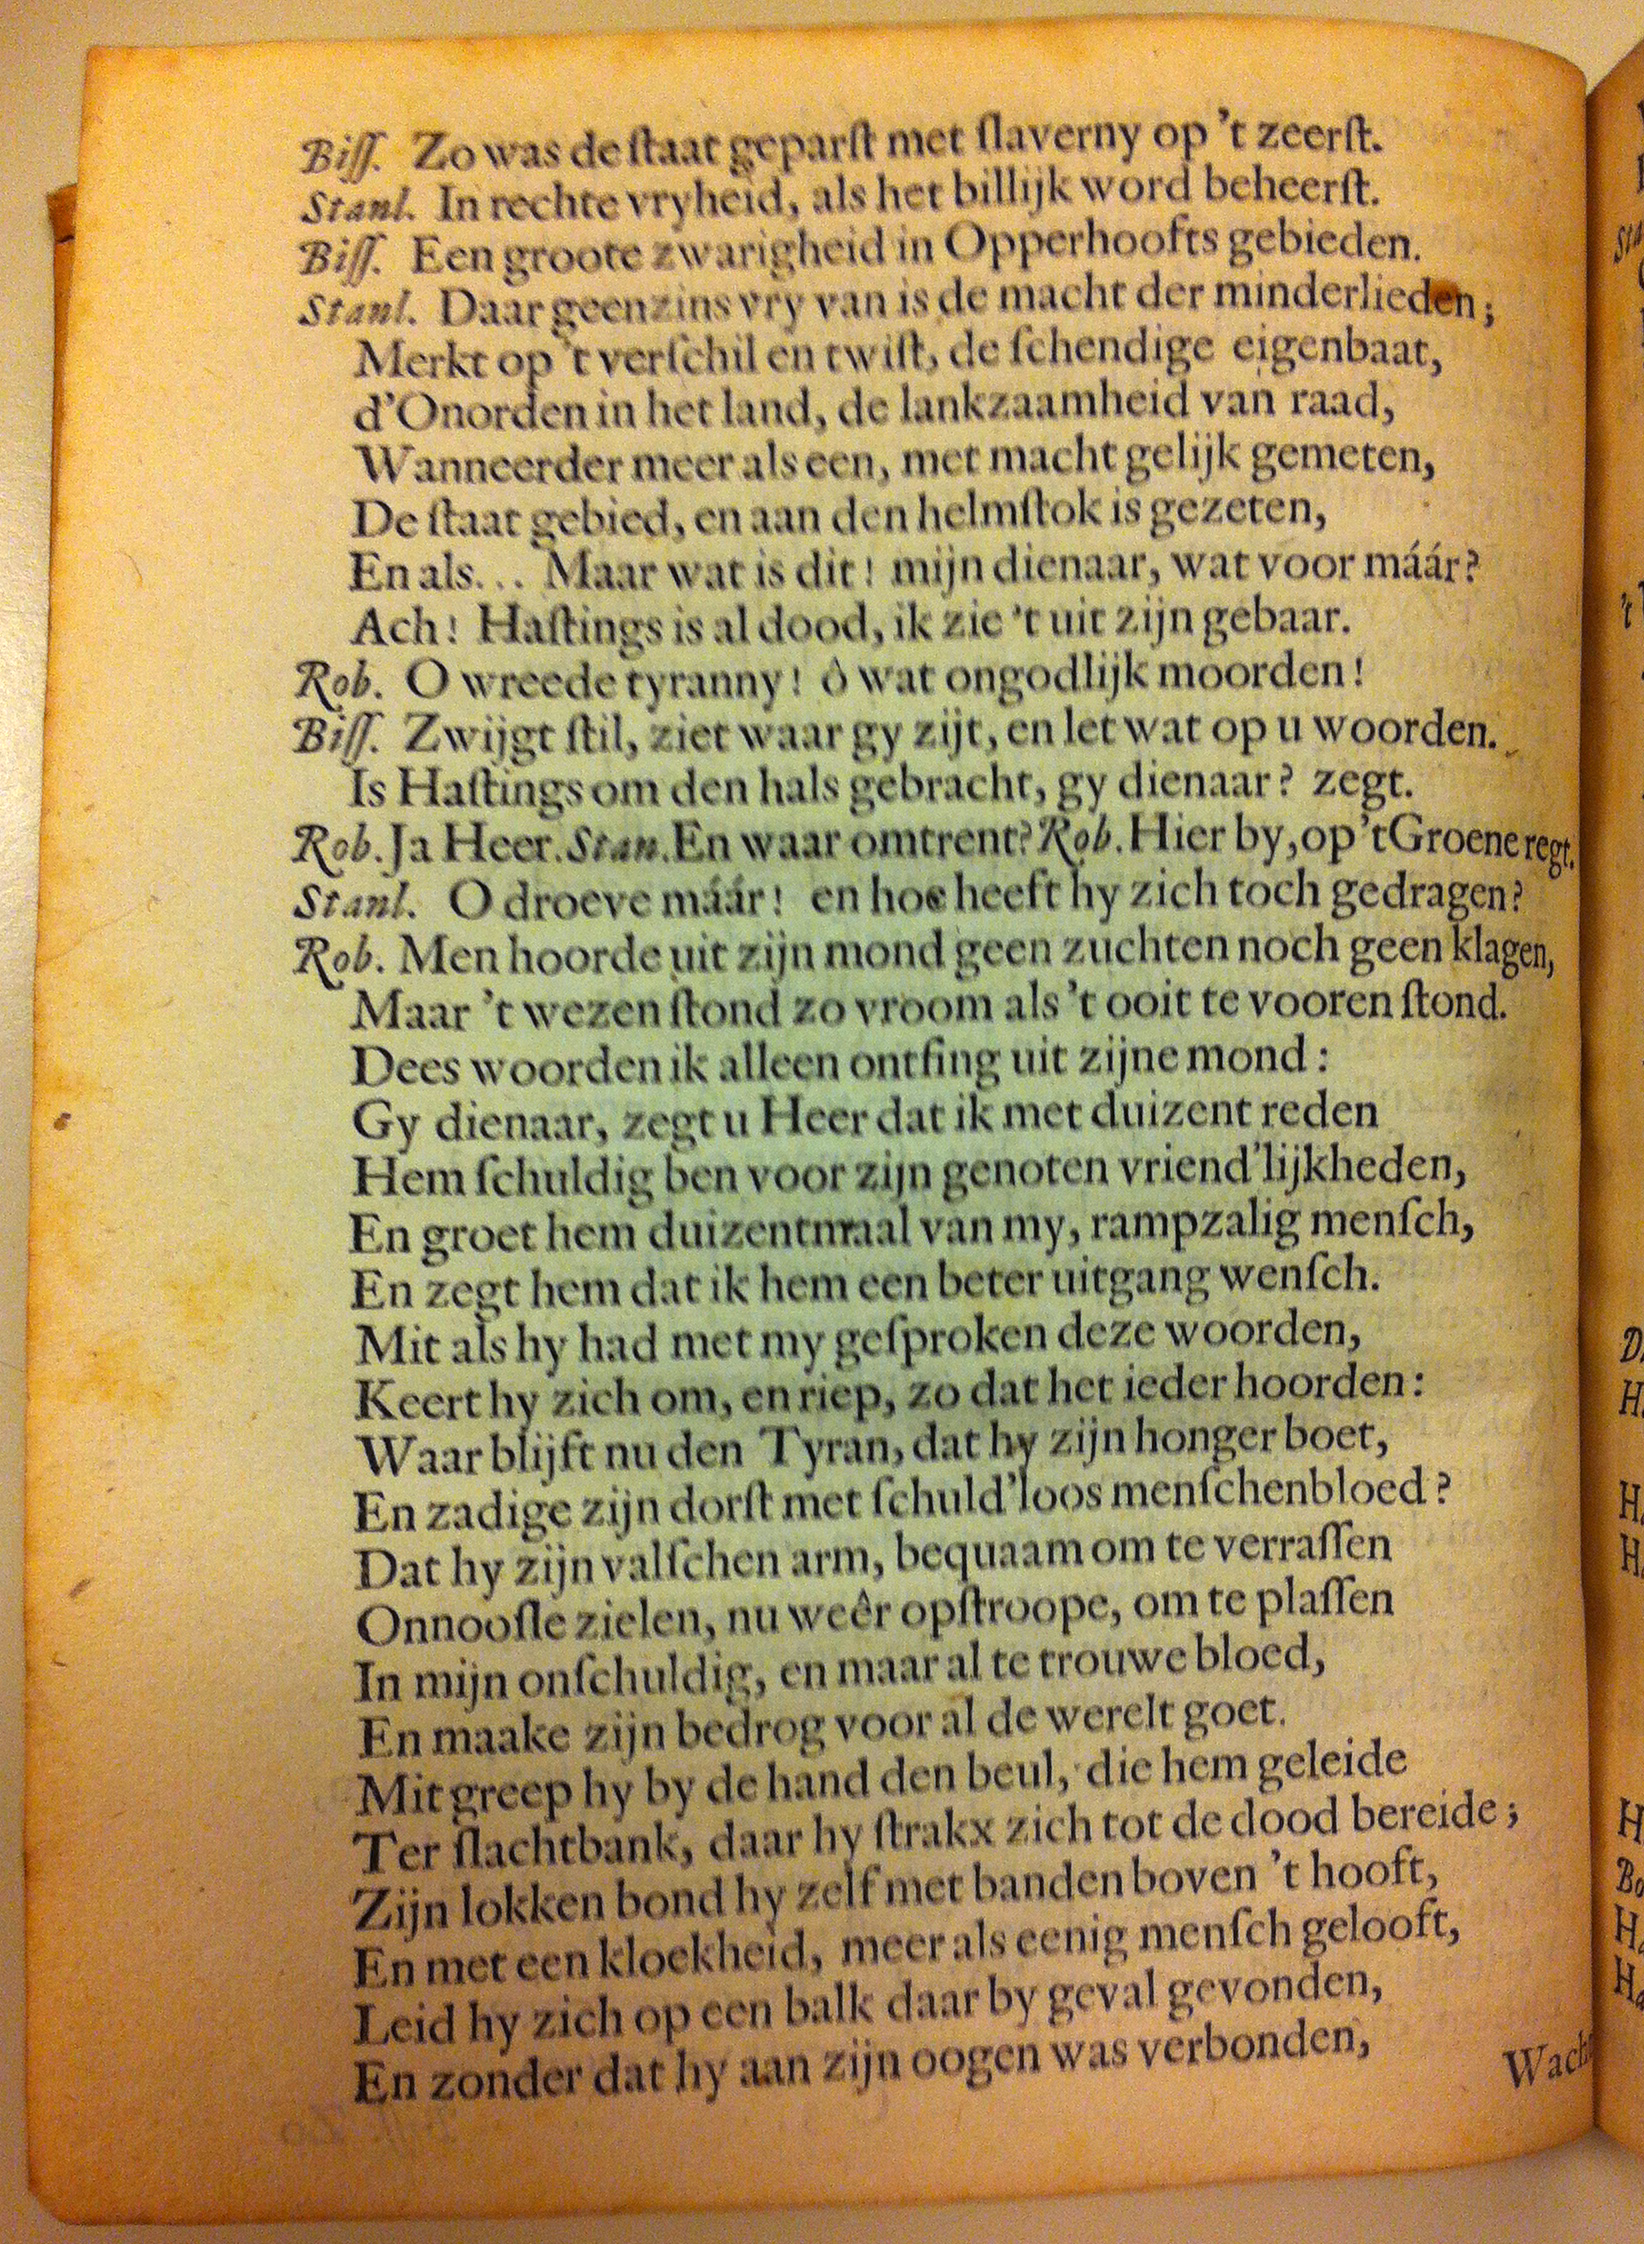 Biſſ. Zo was de ſtaat geparſt met ſlaverny op 't zeerſt.
Stanl. In rechte vryheid, als het billijk word beheerſt.
Biſſ. Een groote zwarigheid in Opperhoofts gebieden.
Stanl. Daar geenzins vry van is de macht der minderlieden;
Merkt op 't verſchil en twiſt, de ſchendige eigenbaat,
d'Onorden in het land, de lankzaamheid van raad,
Wanneerder meer als een, met macht gelijk gemeten,
De ſtaat gebied, en aan den helmſtok is gezeten,
En als... Maar wat is dit! mijn dienaar, wat voor máár?
Ach! Haſtings is al dood, ik zie 't uit zijn gebaar.
Rob. O wreede tyranny! ô wat ongodlijk moorden!
Biſſ. Zwijgt ſtil, ziet waar gy zijt, en let wat op u woorden.
Is Haſtings om den hals gebracht, gy dienaar? zegt.
Rob. Ja Heer. Stan. En waar omtrent? Rob. Hier by, op 't Groene regt.
Stanl. O droeve máár! en hoe heeft hy zich toch gedragen?
Rob. Men hoorde uit zijn mond geen zuchten noch geen klagen,
Maar 't wezen ſtond zo vroom als 't ooit te vooren ſtond.
Dees woorden ik alleen ontfing uit zijne mond:
Gy dienaar, zegt u Heer dat ik met duizent reden
Hem ſchuldig ben voor zijn genoten vriend'lijkheden,
En groet hem duizentmaal van my, rampzalig menſch,
En zegt hem dat ik hem een beter uitgang wenſch.
Mit als hy had met my geſproken deze woorden,
Keert hy zich om, en riep, zo dat het ieder hoorden:
Waar blijft nu den Tyran, dat hy zijn honger boet,
En zadige zijn dorſt met ſchuld'loos menſchenbloed?
Dat hy zijn valſchen arm, bequaam om te verraſſen
Onnooſle zielen, nu weêr opſtroope, om te plaſſen
In mijn onſchuldig, en maar al te trouwe bloed,
En maake zijn bedrog voor al de werelt goet.
Mit greep hy by de hand den beul, die hem geleide
Ter ſlachtbank, daar hy ſtrakx zich tot de dood bereide;
Zijn lokken bond hy zelf met banden boven 't hooft,
En met een kloekheid, meer als eenig menſch gelooft,
Leid hy zich op een balk daar by geval gevonden,
En zonder dat hy aan zijn oogen was verbonden,